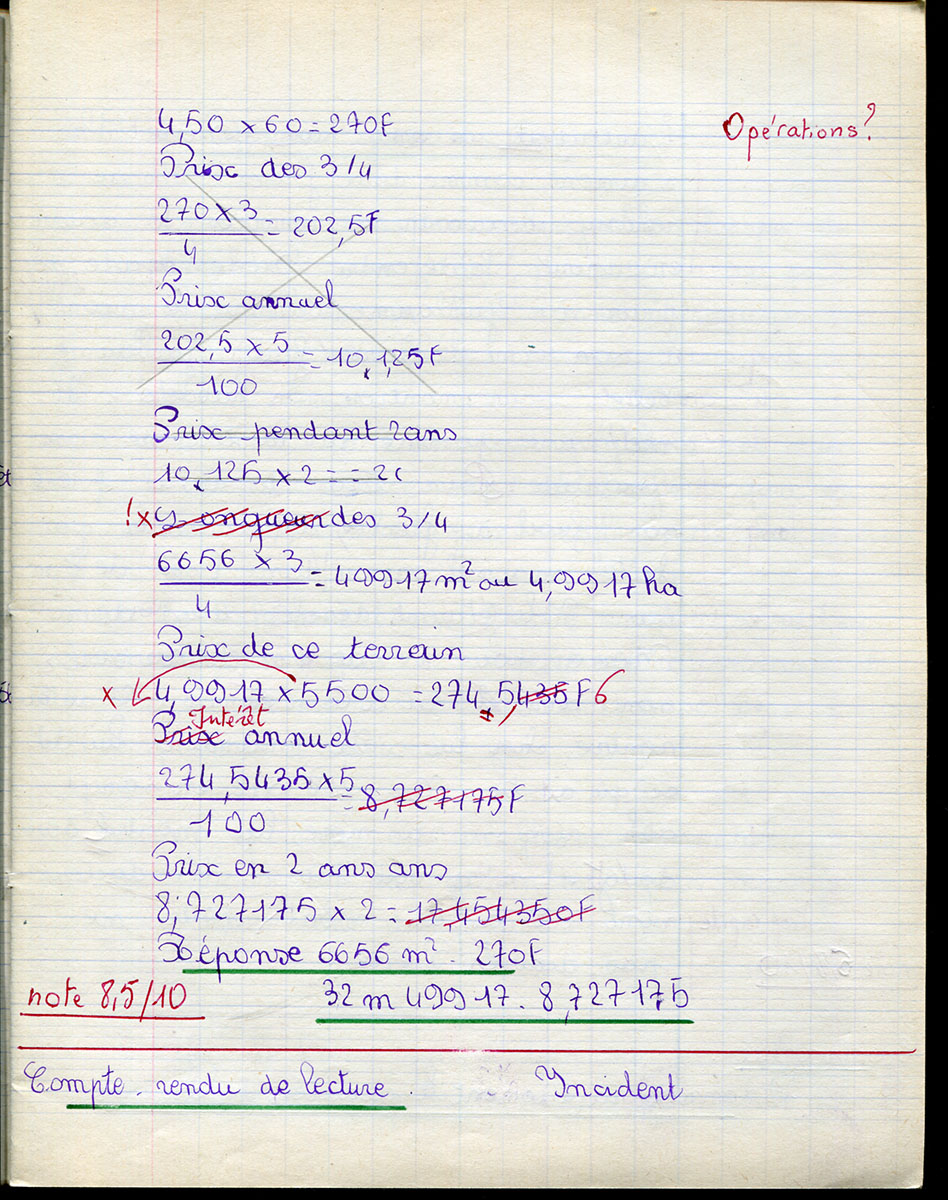 4,50 x 60 = 270F
Opérations?
Prix des 3/4
270 x 3
4
= 202,5F
Prix annuel
202,5 x 5
100
= 10,125F
Prix pendant 2ans
10,125 x 2 = = 20
! x Longueur des 3/4
6656 x 3
4
= 49917 m² ou 4,9917 ha
Prix de ce terrain
x 4,9917 x 5500 = 274,5435 F 6
Intérêt
Prix annuel
274,5435 x 5
100
= 8,727175F
Prix en 2 ans ans
8,727175 x 2 = 17,454350F
Réponse 6656 m² - 270F
note 8,5/10
32 m 49917. 8,727175
Compte rendu de lecture. Incident